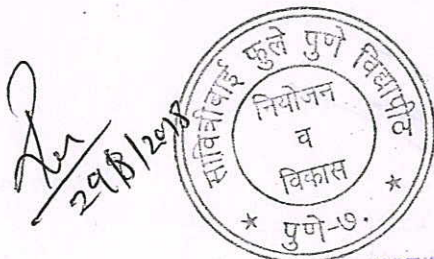 29/8/2018
सावित्रीबाई फुले पुणे विद्यापीठ
नियोजन
व
विकास
* पुणे-७. *